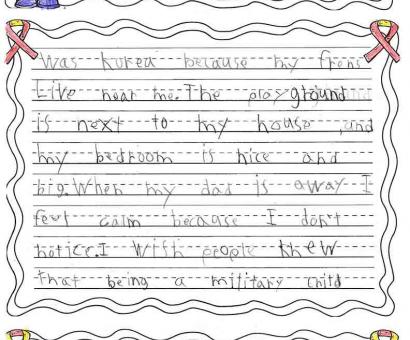 was Korea because my frens
Live near me. The playground
is next to my house, and
my bedroom is nice and
big. When my dad is away I
feel calm because I don't
notice. I wish people knew
that being a military child